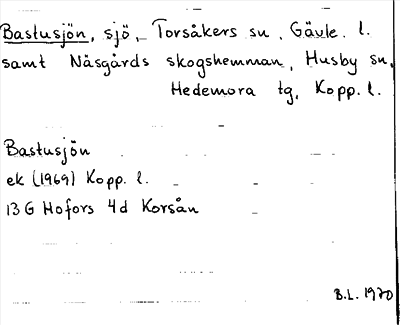 Bastusjön, sjö, Torsåkers sn, Gävle. l.
samt Näsgårds skogshemman, Husby sn,
Hedemora tg, Kopp. l.
Bastusjön
ek (1969) Kopp. l.
13 G Hofors 4d Korsån
B.L. 1970